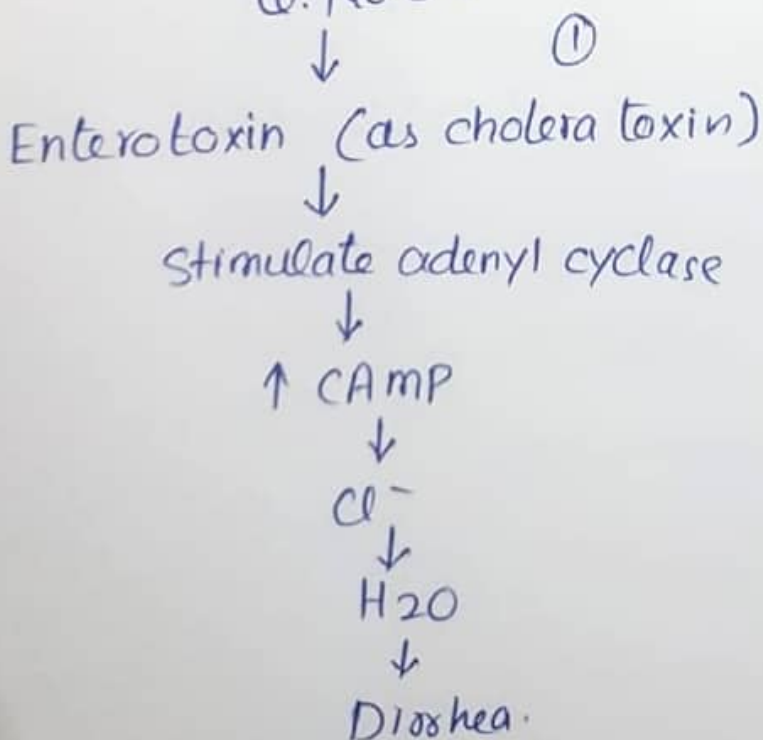 ①
↓
Enterotoxin (as cholera toxin)
↓
Stimulate adenyl cyclase
↓
↑ CAMP
↓
Cl⁻
↓
H2O
↓
Diorhea.